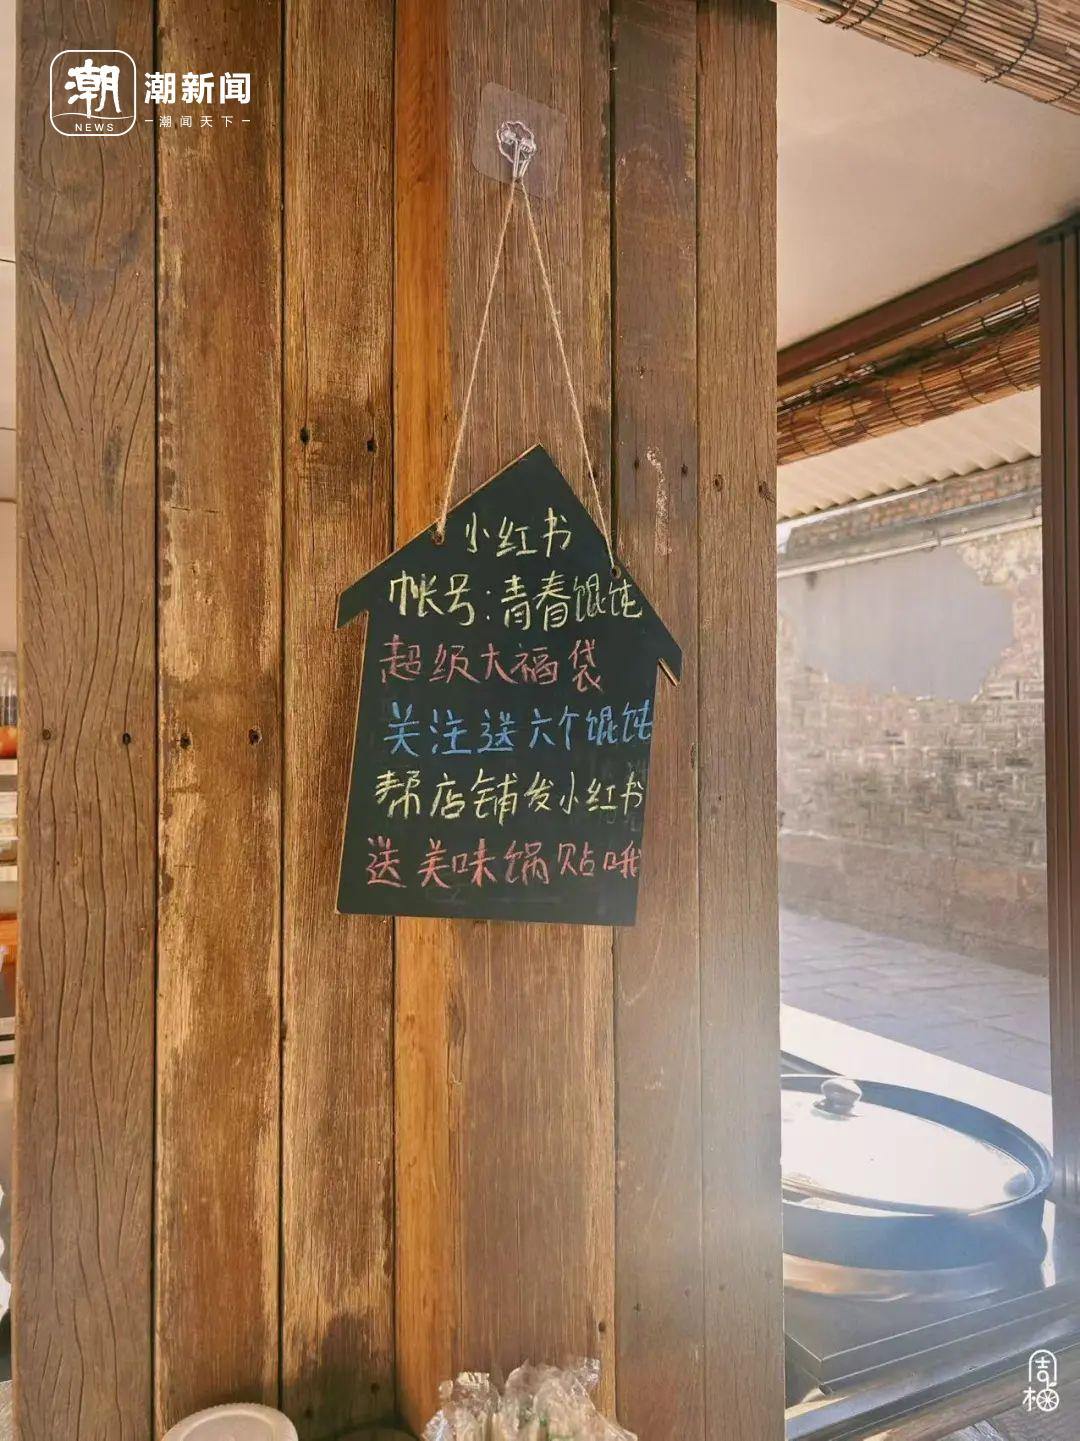 潮
NEWS
潮新闻
潮闻天下
小红书
帐号:青春馄饨
超级大福袋
关注送六个馄饨
帮店铺发小红书
送美味锅贴哦
周柚